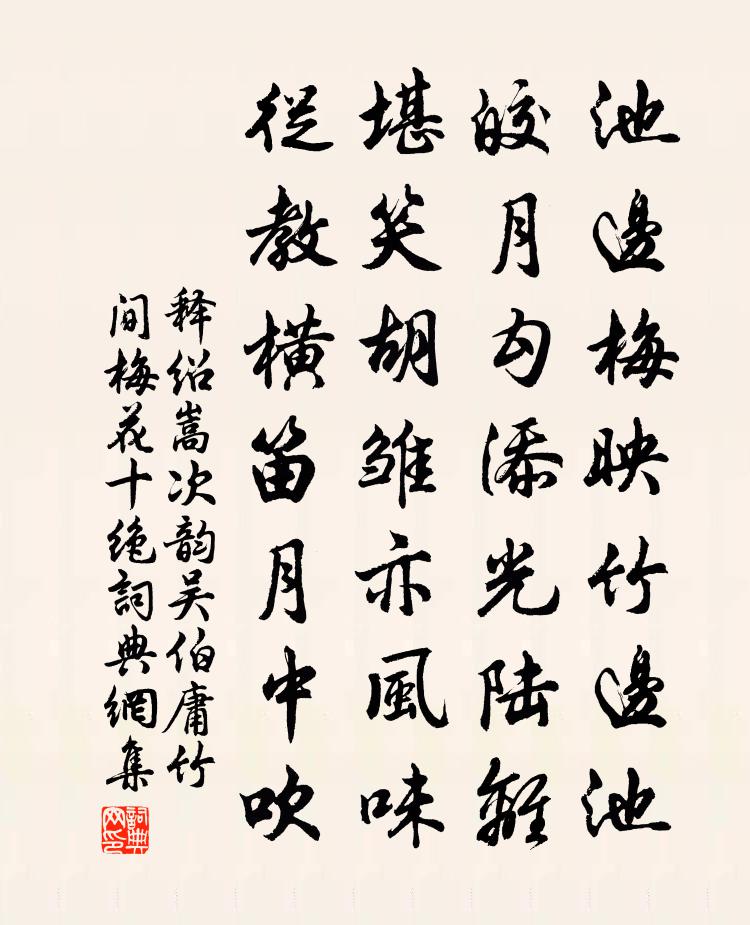 池邊梅映竹邊池
皎月勻添光陆離
堪笑胡雏亦風味
從教横笛月中吹
释绍嵩次韵吴伯庸竹
间梅花十绝詞典網集
詞典